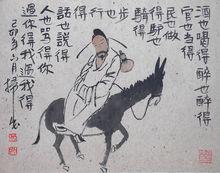 酒也喝得醉也醉得
官也当得
民也做
得驴也
騎得
步
也
行
得
話也說得
人也罵得你
過你得我過我得
六月